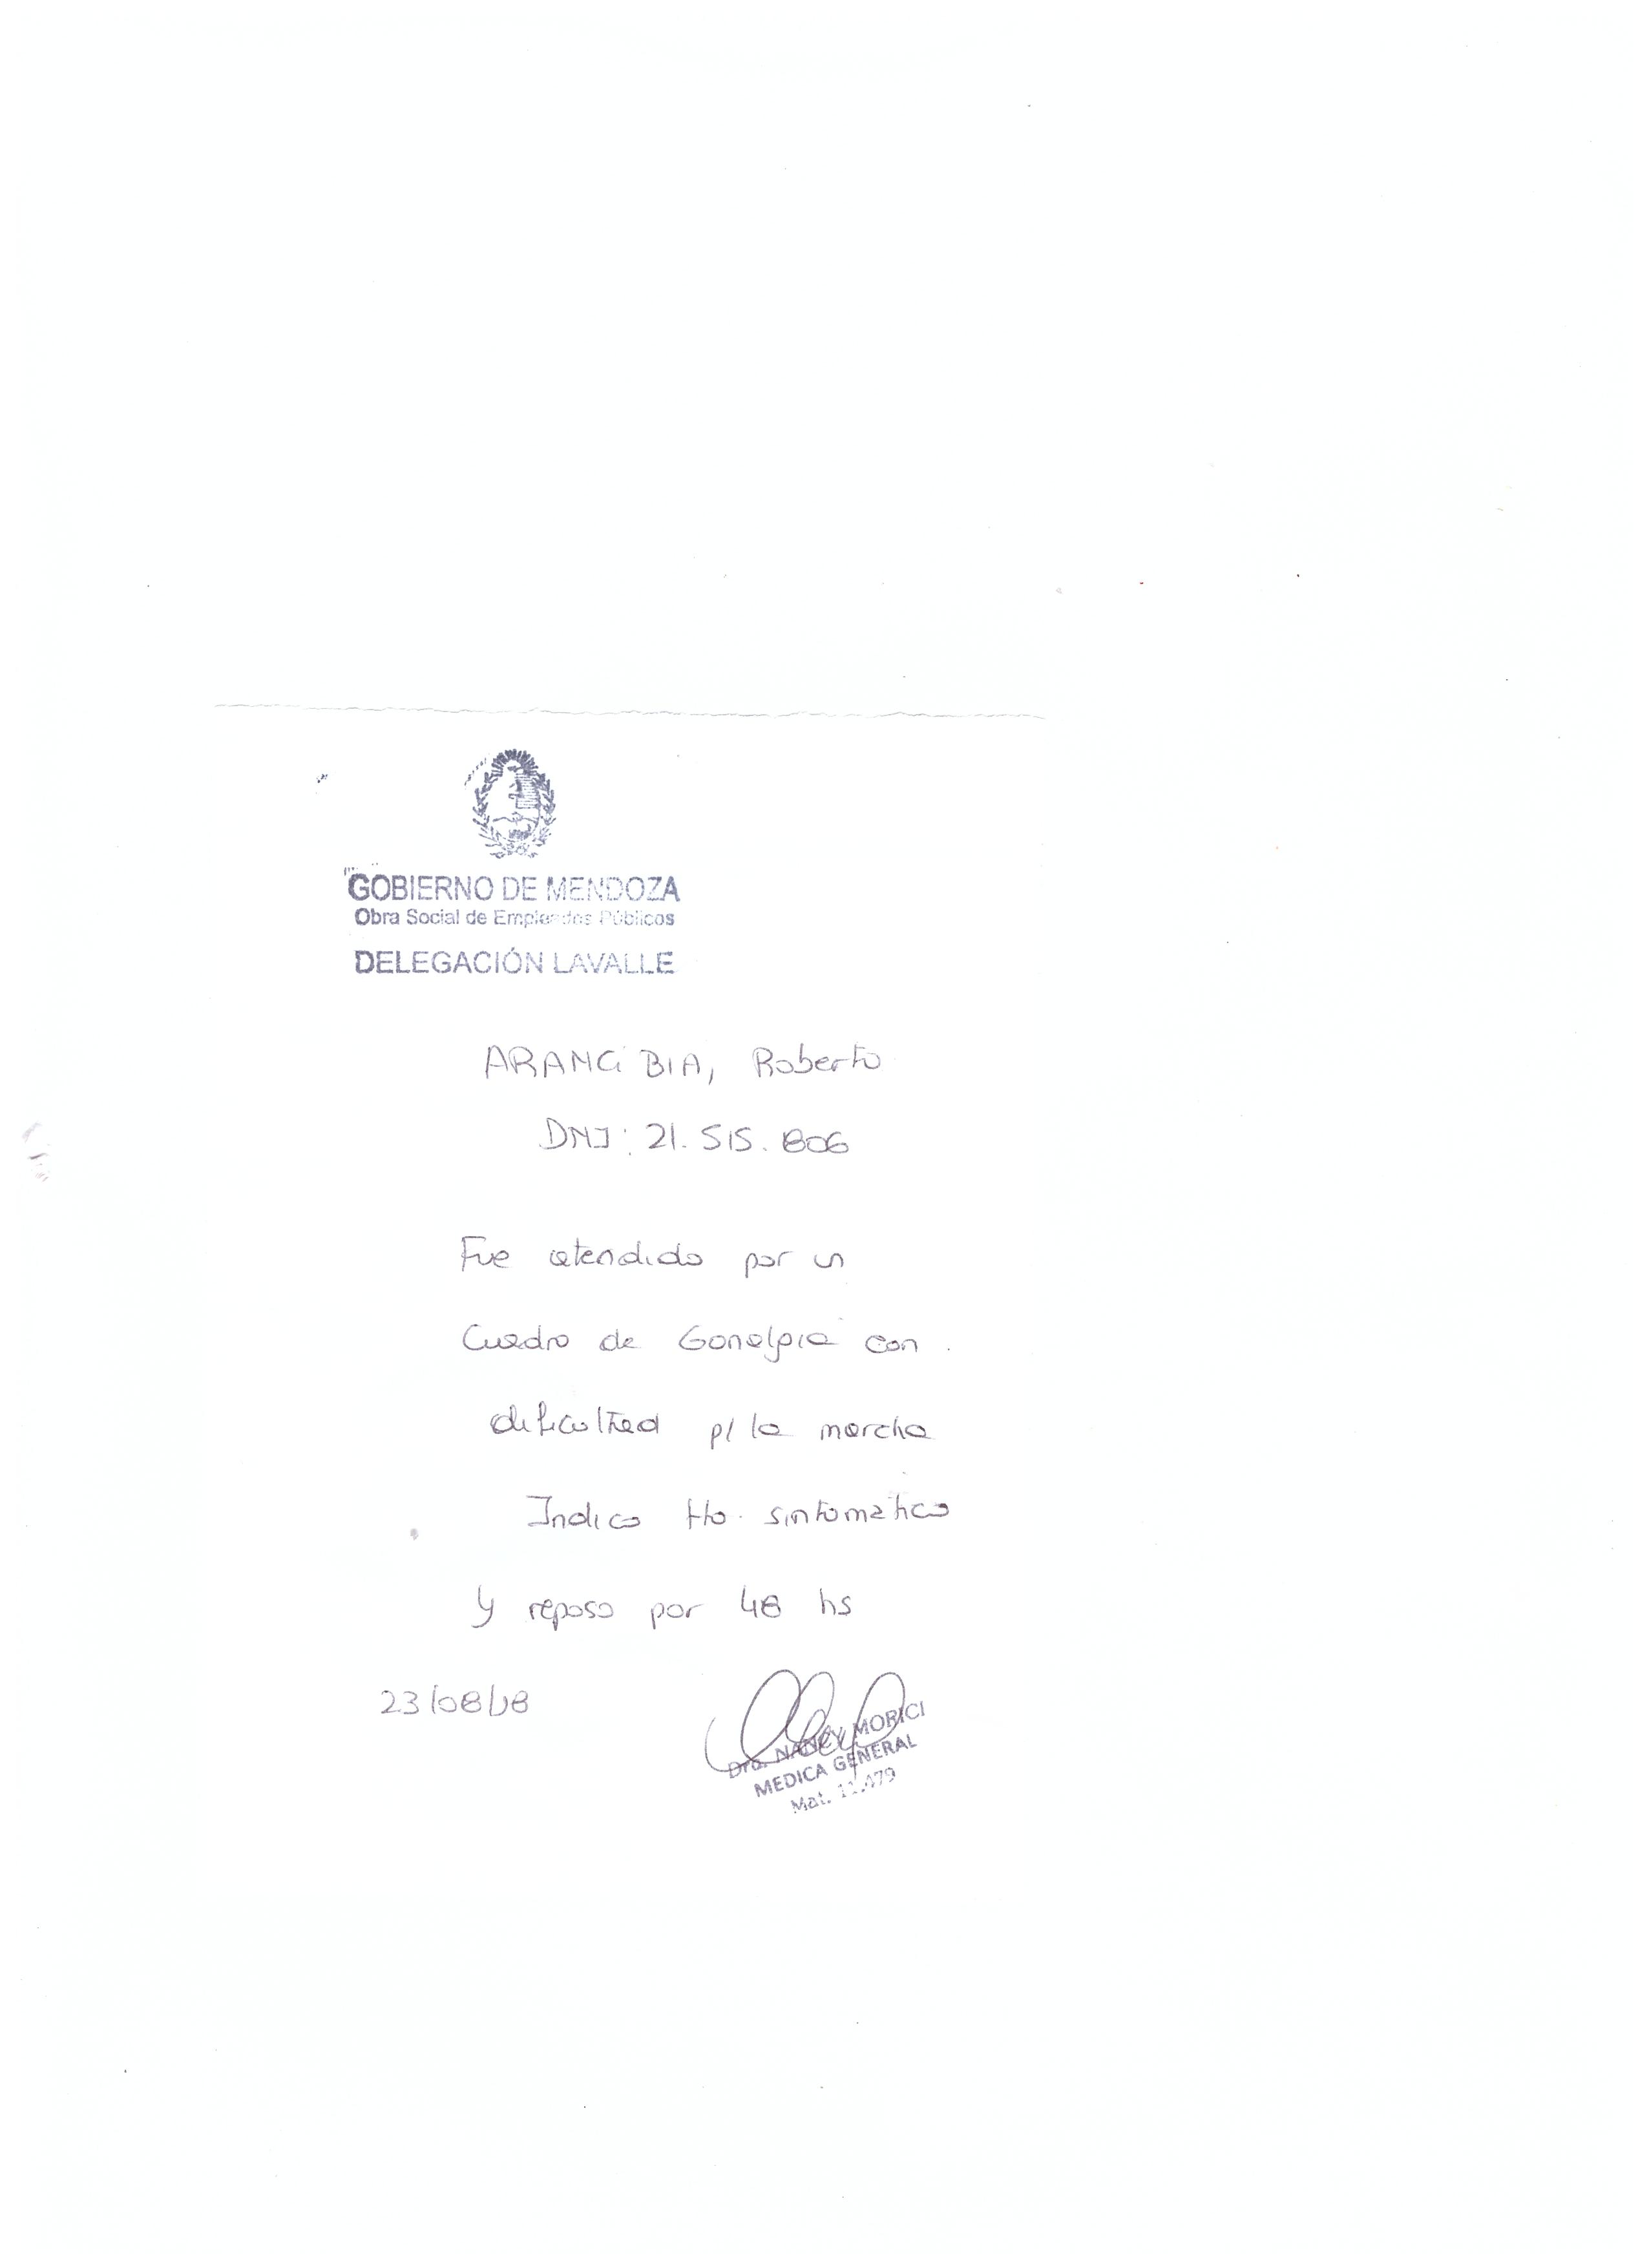 GOBIERNO DE MENDOZA
Obra Social de Empleados Públicos
DELEGACIÓN LAVALLE
ARANGIBIA, Roberto
DNI: 21.515.806
Fue atendido por un
Cuadro de Gonalgia con
dificultad p/ la marcha
Indico tto. sintomático
y reposo por 48 hs
23/08/18
Dra. NANCY MORICI
MEDICA GENERAL
Mat.